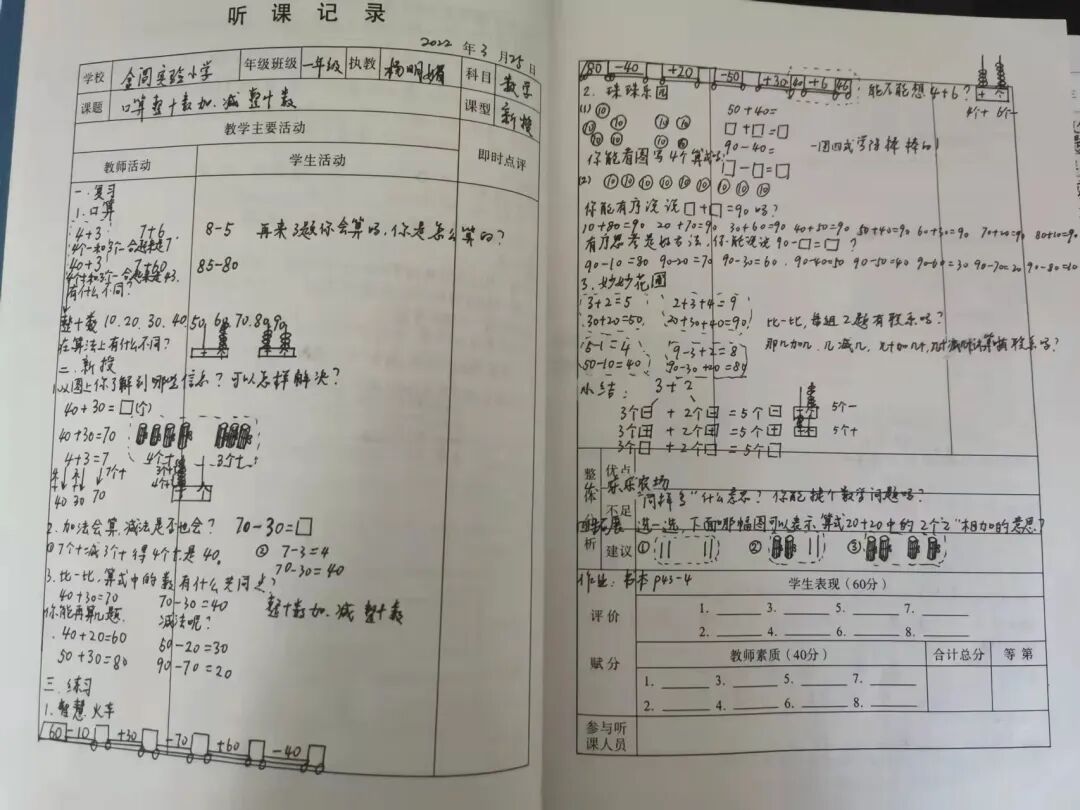 听课记录
2022年3月25日
学校 金阊实验小学 年级班级 一年级 执教 杨明娟 科目 数学
课题 口算整十数加、减整十数 课型 新授
教学主要活动 即时点评
教师活动 学生活动
一.复习
1.口算
4+3 7+6 8-5 再来3题你会算吗,你是怎么算的?
4个一和3个一合起来是7
40+3 7+60 85-80
有什么不同?
整十数 10.20.30.40.50.60.70.80.90
在算法上有什么不同?
二.新授
1.从图上你了解到哪些信息?可以怎样解决?
40+30=□(个)
40+30=70
4+3=7 4个十 3个十
7个十 3个十
4个十
40 30 70 十 个
2.加法会算,减法是否也会? 70-30=□
① 7个十减3个十得4个十是40。 ② 7-3=4
70-30=40
3.比一比,算式中的数有什么共同点?
40+30=70 70-30=40 整十数加、减整十数
你能再算几题. 减法呢?
40+20=60 50-20=30
50+30=80 90-70=20
三.练习
1.智慧火车
60 -10 +30 -70 +60 -40
80 -40 +20 -50 +30 40 +6 46 能不能想4+6? 十 个
4个十 6个一
2.珠珠乐园
(1) ⑩ 50+40=
⑩ ⑩ ⑩ ⑩ □+□=□
⑩ ⑩ ⑩ ⑩ 90-40= 一图四式写得棒棒的!
你能看图写4个算式吗? □-□=□
(2) ⑩ ⑩ ⑩ ⑩ ⑩ ⑩ ⑩ ⑩ ⑩
你能有序说说□+□=90吗?
10+80=90 20+70=90 30+60=90 40+50=90 50+40=90 60+30=90 70+20=90 80+10=90
有序思考是好方法,你能说说90-□=□?
90-10=80 90-20=70 90-30=60 90-40=50 90-50=40 90-60=30 90-70=20 90-80=10
3.妙妙花园
3+2=5 2+3+4=9
30+20=50 20+30+40=90 比一比,每组2题有联系吗?
5-1=4 9-3+2=8
50-10=40 90-30+20=80
小结: 3+2
3个□ + 2个□ = 5个□ 5个一
3个□ + 2个□ = 5个□ 5个十
3个□ + 2个□ = 5个□
整体分析 优点 不足 建议
乐乐农场
"同样多"什么意思?你能提个数学问题吗?
拓展 选一选,下面哪幅图可以表示算式20+20中的2个"2"相加的意思?
① ② ③
作业:书本P43-4
评价赋分 学生表现(60分)
1. 3. 5. 7.
2. 4. 6. 8.
教师素质(40分) 合计总分 等第
1. 3. 5. 7.
2. 4. 6. 8.
参与听课人员